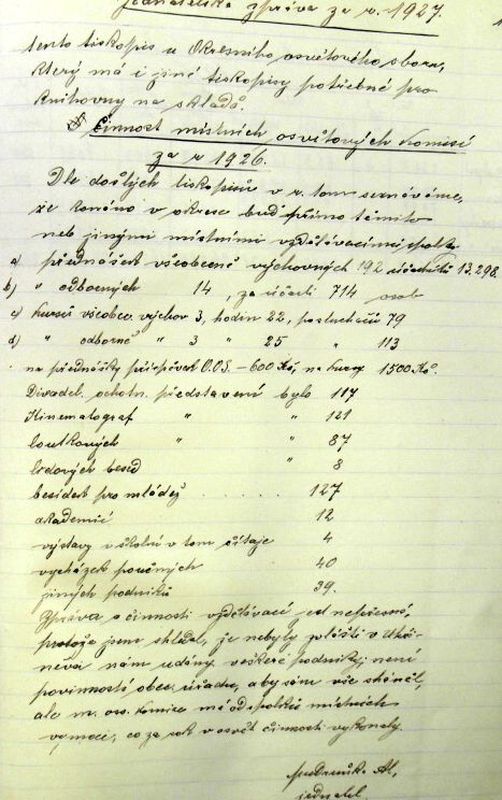 Jednatelská zpráva za r. 1927.
tento tiskopis u Okresního osvětového sboru,
který má i jiné tiskopisy potřebné pro
knihovny na skladě.
Činnost místních osvětových komisí
za r 1926.
Dle došlých tiskopisů v r. tom seznáváme,
že konáno v okrese buď přímo těmito
neb jinými místními vzdělávacími spolky
a) přednášek všeobecně výchovných 192 účastníků 13.298.
b) " odborných 14, za účasti 714 osob
c) Kursů všeobec. výchov 3, hodin 22, posluchačů 79
d) " odborně " 3 " 25 " 113
na přednášky příspěvek O.O.S. – 600 Kč, na kursy 1500 Kč.
Divadel. ochotn. představení bylo 117
Kinematograf " " 121
loutkových " " 87
lidových besed " 8
besídek pro mládež . . . . . . 127
akademií 12
výstavy v školní v tom čítaje 4
vycházek poučných 40
jiných podniků 39.
Zpráva o činnosti vzdělávací jest
protože jsem shledal, že nebyly zvláště v
nám udány veškeré podniky, není
povinností obec. úřadu, aby sám vše sháněl,
ale m. osv. komise má od spolků místních
co za rok v osvět činnosti vykonaly.
jednatel